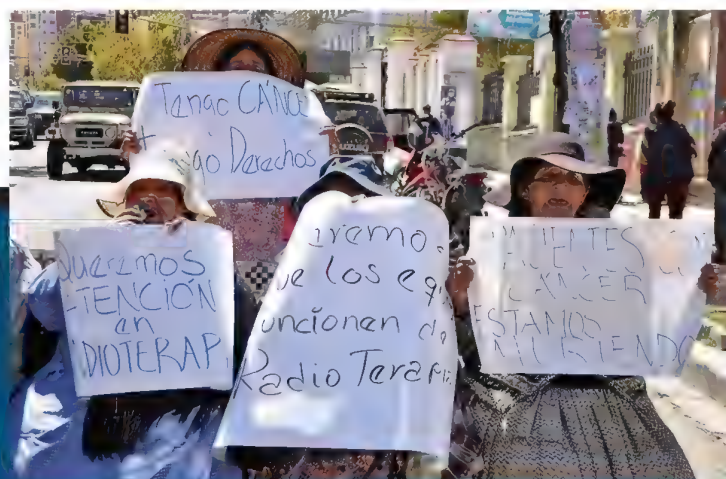 Tengo CANCE
+ ngo Derechos
Queremos
ATENCIÓN
en
DIOTERAP
iremos
ue los eq
uncionen de
Radio Terapia
PACIENTES CON
CÁNCER
ESTAMOS
MURIENDO